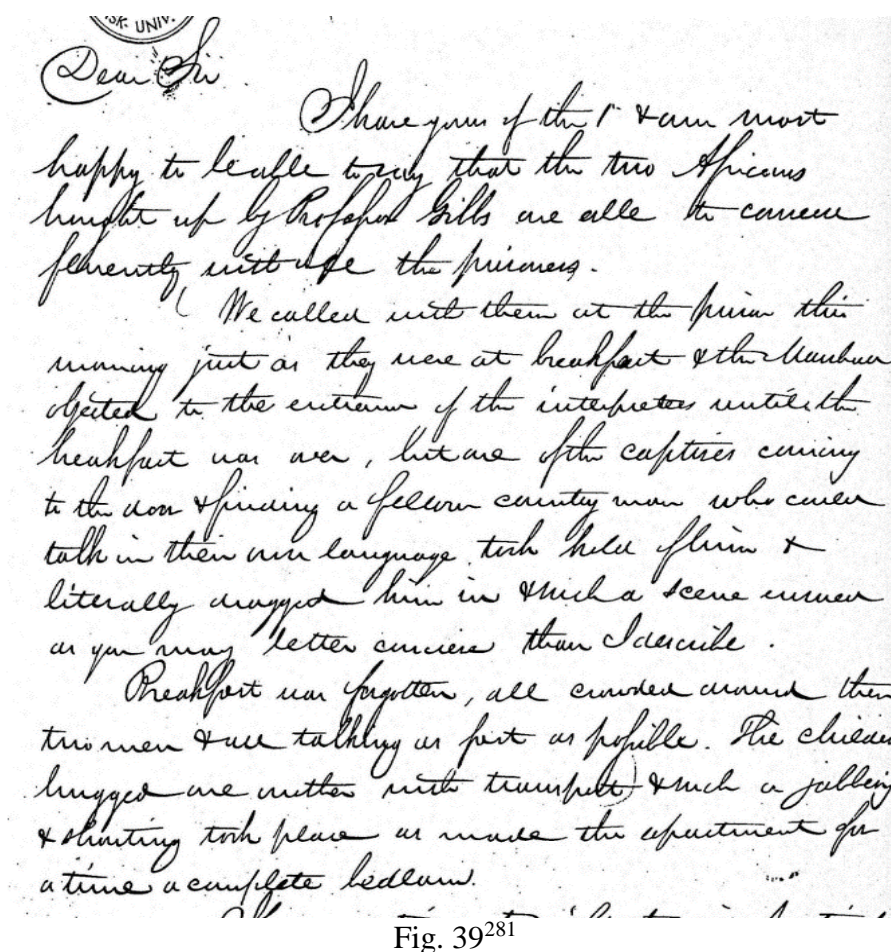 SK. UNIV.
Dear Sir
I have yours of the 1st & am most
happy to be able to say that the two Africans
brought up by Professor Gibbs are able to converse
fluently with the prisoners.
We called with them at the prison this
morning just as they were at breakfast & the Marshal
objected to the entrance of the interpreters until the
breakfast was over, but one of the captives coming
to the door & finding a fellow country man who could
talk in their own language took hold of him &
literally dragged him in & such a scene ensued
as you may better conceive than I describe.
Breakfast was forgotten, all crowded around the
two men & all talking as fast as possible. The children
hugged one another with transport & such a jabbing
& shouting took place as made the apartment for
a time a complete bedlam.
Fig. 39281